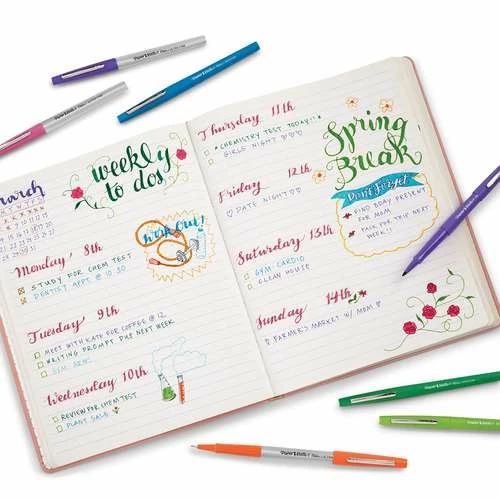 March
weekly
to dos
Monday 8th
STUDY FOR CHEM TEST
DENTIST APPT @ 10:30
Work Out!
Tuesday 9th
MEET WITH KATE FOR COFFEE @ 12
WRITING PROMPT DUE NEXT WEEK
GYM: ABS!
Wednesday 10th
REVIEW FOR CHEM TEST
PLANT SALE
Thursday 11th
*CHEMISTRY TEST TODAY!!*
GIRLS NIGHT ♡♡♡
Friday 12th
♡ DATE NIGHT ♡♡
Saturday 13th
GYM: CARDIO
CLEAN HOUSE
Sunday 14th
FARMER'S MARKET W/ MOM ♡
Spring
Break
Don't Forget
FIND BDAY PRESENT
FOR MOM
PACK FOR TRIP NEXT
WEEK!!
Paper Mate
Paper Mate
Paper Mate
Paper Mate
Paper Mate
Paper Mate